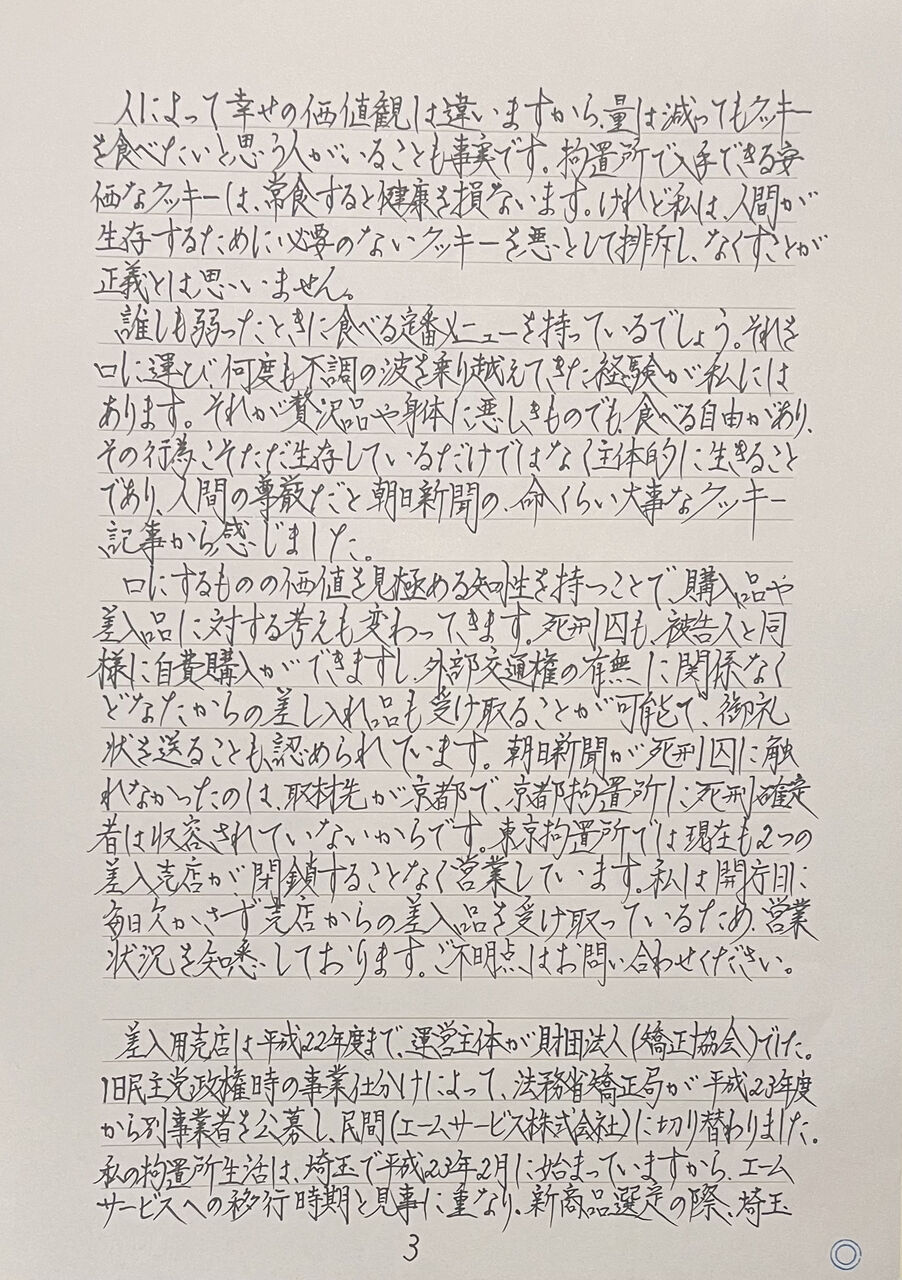 人によって幸せの価値観は違いますから、量は減ってもクッキー
を食べたいと思う人がいることも事実です。拘置所で入手できる安
価なクッキーは、常食すると健康を損ないます。けれど私は、人間が
生存するために必要のないクッキーを悪として排斥し、なくすことが
正義とは思いません。
誰しも弱ったときに食べる定番メニューを持っているでしょう。それを
口に運び、何度も不調の波を乗り越えてきた経験が私には
あります。それが贅沢品や身体に悪しきものでも、食べる自由があり、
その行為こそただ生存しているだけではなく主体的に生きること
であり、人間の尊厳だと朝日新聞の、命くらい大事なクッキー
記事から感じました。
口にするものの価値を見極める知性を持つことで、購入品や
差入品に対する考えも変わってきます。死刑囚も、被告人と同
様に自費購入ができますし、外部交通権の有無に関係なく
どなたからの差し入れ品も受け取ることが可能で、御礼
状を送ることも認められています。朝日新聞が死刑囚に触
れなかったのは、取材先が京都で、京都拘置所に死刑確定
者は収容されていないからです。東京拘置所では現在も2つの
差入売店が閉鎖することなく営業しています。私は開庁日に
毎日欠かさず売店からの差入品を受け取っているため、営業
状況を知悉しております。ご不明点はお問い合わせください。
差入用売店は平成22年度まで、運営主体が財団法人(矯正協会)でした。
旧民主党政権時の事業仕分けによって、法務省矯正局が平成23年度
から別事業者を公募し、民間(エームサービス株式会社)に切り替わりました。
私の拘置所生活は、埼玉で平成23年2月に始まっていますから、エーム
サービスへの移行時期と見事に重なり、新商品選定の際、埼玉
3